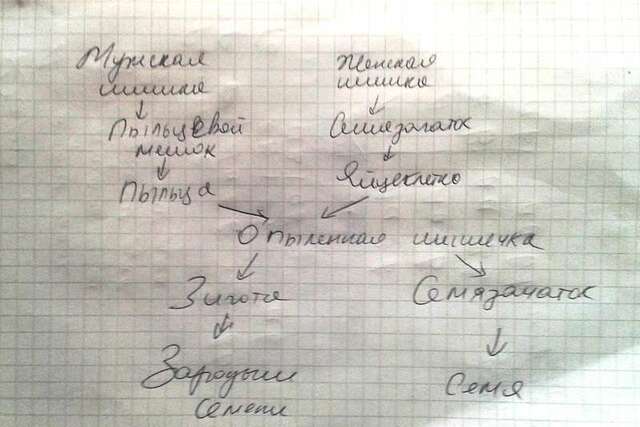 Мужская
шишка
Женская
шишка
Пыльцевой
мешок
Семязачаток
Пыльца
Яйцеклетка
Опыленная шишечка
Зигота
Семязачаток
Зародыш
семени
Семя